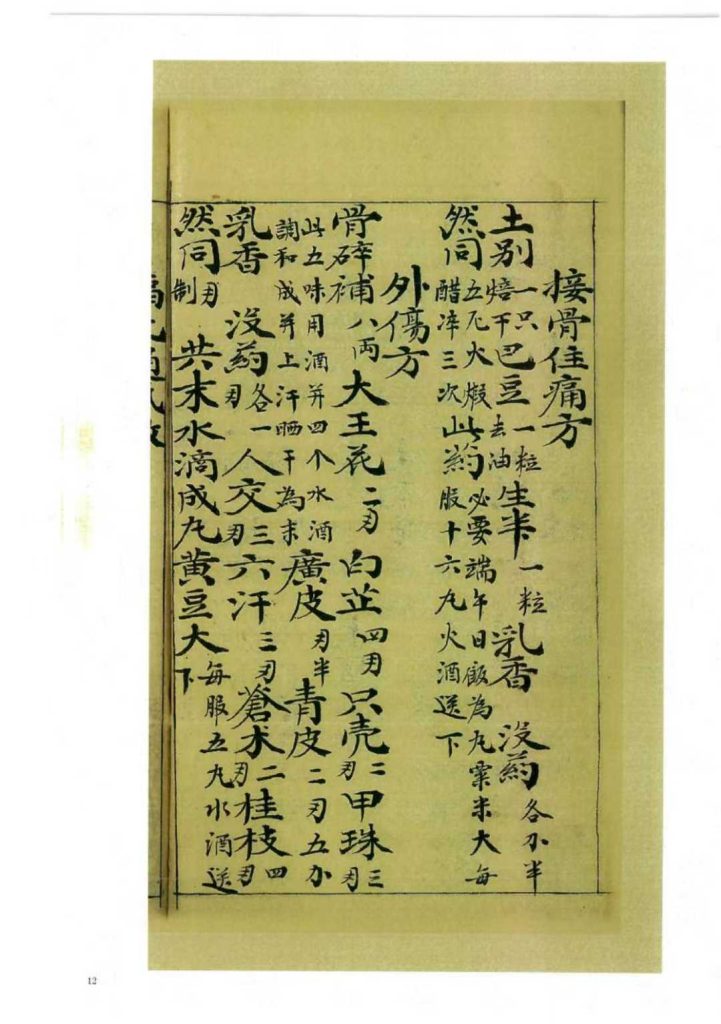 接骨住痛方
土别一只焙干巴豆一粒去油生半一粒乳香 没葯各分半
然同五火煅醋淬三次此葯必要端午日飯為丸粟米大每服十六丸火酒送下
外傷方
骨碎補八両大王花二刃白芷四刃只壳二刃甲珠三刃
此五味用酒并四个水酒調和成并上汗晒干為末廣皮刃半青皮二刃五分
乳香 没葯各一刃人交三刃六汗三刃蒼术二刃桂枝四刃
然同制刃共末水滴成丸黄豆大每服五丸水酒送下
12